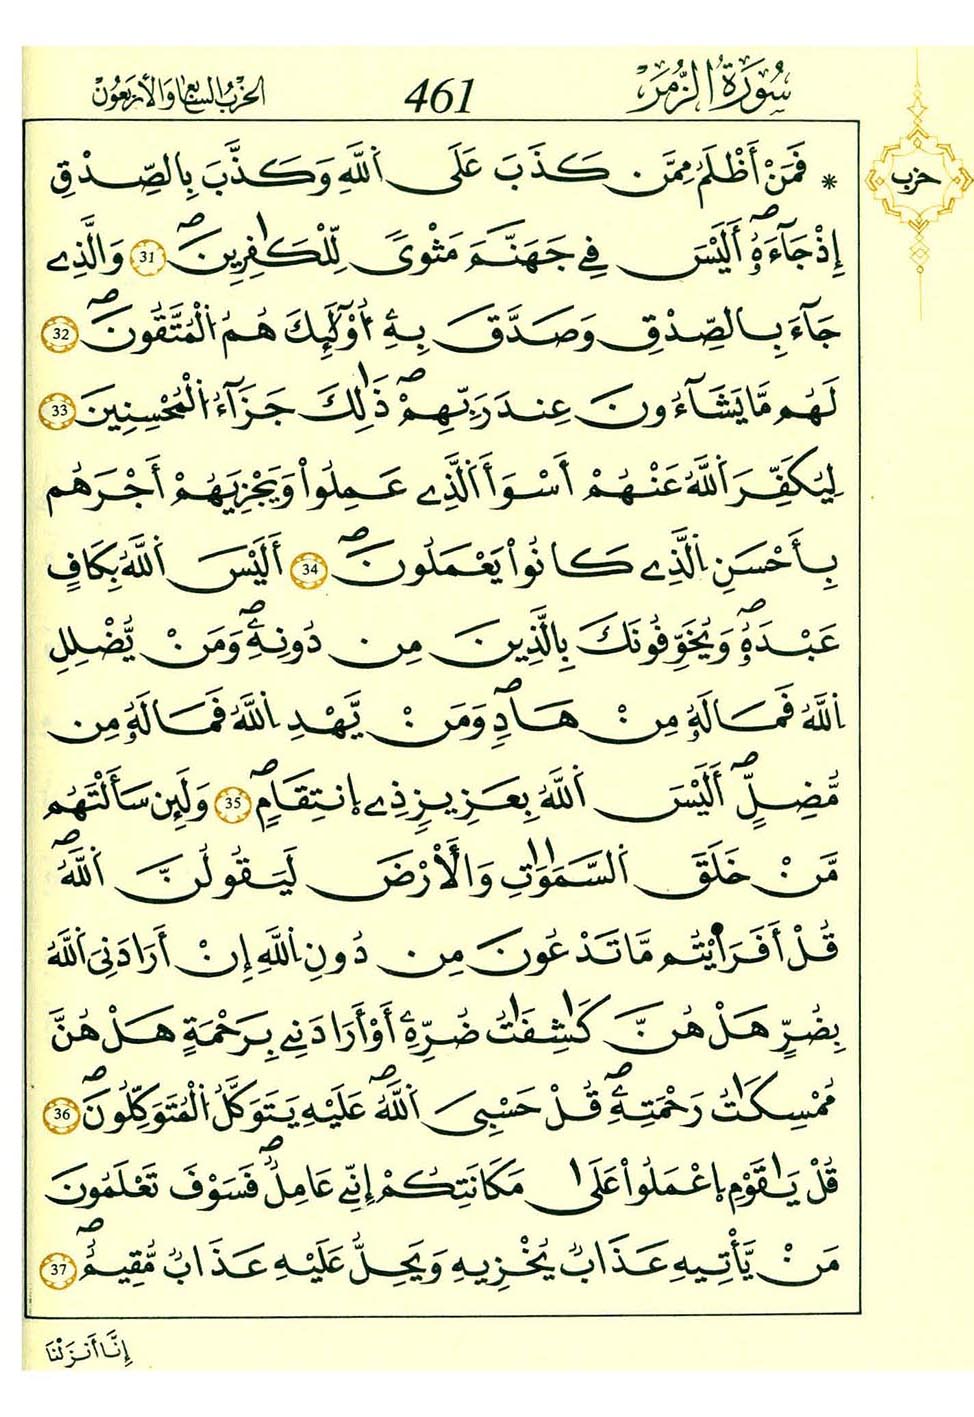 سُورَةُ الزُّمَرِ 461 الحِزْبُ السَّابِعُ وَالأَرْبَعُونَ
حزب
* فَمَنْ أَظْلَمُ مِمَّن كَذَبَ عَلَى اَ۬للَّهِ وَكَذَّبَ بِالصِّدْقِ
إِذْ جَآءَهُۥٓ أَلَيْسَ فِے جَهَنَّمَ مَثْوىٗ لِّلْكَٰفِرِينَۖ 31 وَالَّذِے
جَآءَ بِالصِّدْقِ وَصَدَّقَ بِهِۦٓ أُوْلَٰٓئِكَ هُمُ اُ۬لْمُتَّقُونَۖ 32
لَهُم مَّا يَشَآءُونَ عِندَ رَبِّهِمْۖ ذَٰلِكَ جَزَآءُ اُ۬لْمُحْسِنِينَ 33
لِيُكَفِّرَ اَ۬للَّهُ عَنْهُمْ أَسْوَأَ اَ۬لَّذِے عَمِلُواْ وَيَجْزِيَهُمْ أَجْرَهُم
بِأَحْسَنِ اِ۬لَّذِے كَانُواْ يَعْمَلُونَۖ 34 أَلَيْسَ اَ۬للَّهُ بِكَافٍ
عَبْدَهُۥۖ وَيُخَوِّفُونَكَ بِالَّذِينَ مِن دُونِهِۦۖ وَمَنْ يُّضْلِلِ
اِ۬للَّهُ فَمَا لَهُۥ مِنْ هَادٖۖ وَمَنْ يَّهْدِ اِ۬للَّهُ فَمَا لَهُۥ مِن
مُّضِلٍّۖ أَلَيْسَ اَ۬للَّهُ بِعَزِيزٖ ذِے اِ۪نتِقَامٖۖ 35 وَلَئِن سَأَلْتَهُم
مَّنْ خَلَقَ اَ۬لسَّمَٰوَٰتِ وَالْأَرْضَ لَيَقُولُنَّ اَ۬للَّهُۖ
قُلْ أَفَرَٰٓيْتُم مَّا تَدْعُونَ مِن دُونِ اِ۬للَّهِ إِنْ أَرَادَنِيَ اَ۬للَّهُ
بِضُرٍّ هَلْ هُنَّ كَٰشِفَٰتُ ضُرِّهِۦٓ أَوْ أَرَادَنِے بِرَحْمَةٍ هَلْ هُنَّ
مُمْسِكَٰتُ رَحْمَتِهِۦۖ قُلْ حَسْبِيَ اَ۬للَّهُۖ عَلَيْهِ يَتَوَكَّلُ اُ۬لْمُتَوَكِّلُونَۖ 36
قُلْ يَٰقَوْمِ اِ۪عْمَلُواْ عَلَىٰ مَكَانَتِكُمْ إِنِّے عَامِلٞۖ فَسَوْفَ تَعْلَمُونَ
مَنْ يَّأْتِيهِ عَذَابٞ يُخْزِيهِ وَيَحِلُّ عَلَيْهِ عَذَابٞ مُّقِيمٌۖ 37
إِنَّا أَنزَلْنَا